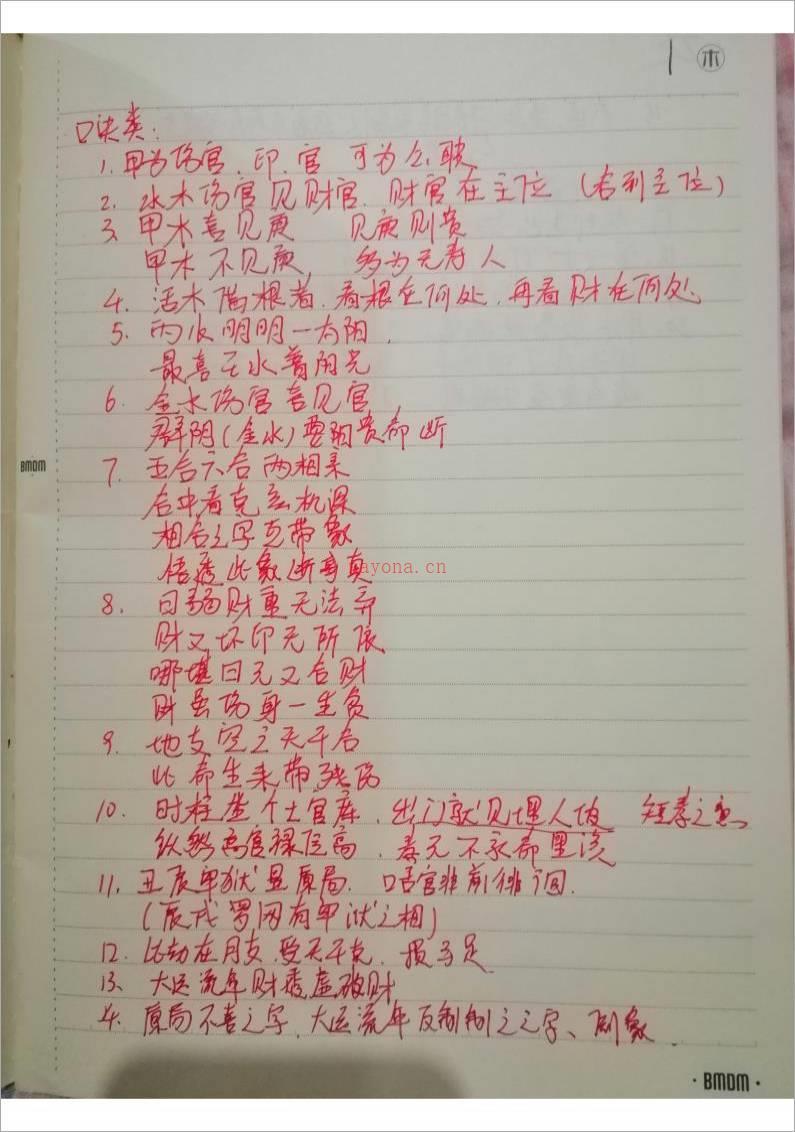 1 木
口诀类:
1. 甲为伤官、印、官 可为公职
2. 水木伤官见财官、财官在主位 (若到主位)
3、甲木喜见庚 见庚则贵
甲木不见庚, 多为无寿人
4. 活木 根者、看根在何处、再看财在何处
5. 丙火明明一太阳,
最喜壬水 阳光
6. 金水伤官喜见官,
群阴(金水)要阳贵命断
7. 五合六合两相亲
合中看克玄机深
相合之字克带象
悟透此象断事真
8. 日弱财重无法奔
财又坏印无所依
哪堪日元又合财
财 伤身一生负
9. 地支空亡天干合
此命生来带残伤
10. 时柱坐个土官库、出门就见埋人坡 短寿之意
纵然高官禄位高、寿元不永命里该
11. 丑辰 狱显原局、 官非前徘徊.
(辰戌罗网有 之相)
12. 比劫在月支、受天干克、损手足
13、大运流年财透虚破财
14. 原局不喜之字、大运流年反制制之之字、 象.
ayona.cn
BMDM
· BMDM ·